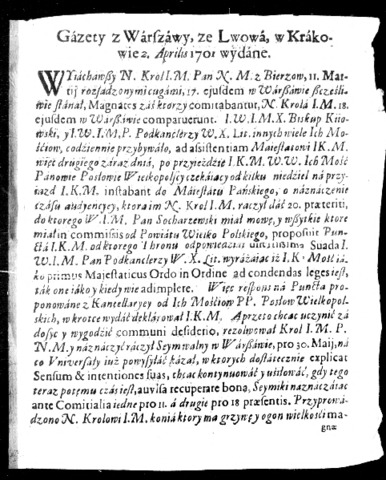 Gázety z Wárszáwy, ze Lwowá, w Kráko-
wie 2. Aprilis 1701 wydáne.
WYiácháwszy N. Krol I.M. Pan N. M. z Bierzow, 11. Mar-
tij rozsadzonymi cugámi, 17. ejusdem w Wárszáwie szczęśli-
wie stánał, Magnates záś ktorzy comitabantur, N. Krolá I.M. 18.
ejusdem w Wárszáwie comparuerunt. I.W.I.M.X. Biskup Kiio-
wski, y I.W.I.M.P. Podkánclerzy W.X. Lit. innych wiele Ich Mo-
śćiow, codziennie przybywáło, ad assistentiam Maiestatowi I K.M.
więc drugiego záraz dniá, po przyieźdźie I.K.M. W.W. Ich Mość
Pánowie Posłowie Wielkopolscy czekáiący od kilku niedziel ná przy-
iazd I.K.M. instabant do Máiestatu Páńskiego, o náznáczenie
czásu audyencyey, ktora im N. Krol I.M. raczył dáć 20. præteriti,
do ktorego W.I.M. Pan Socharzewski miał mowę, y wszytkie ktore
miał in commissis od Powiátu Wielko Polskiego, proposuit Pun-
ctá I.K.M. od ktorego Thronu odpowiedział Suada I.
W.I.M. Pan Podkánclerzy W.X. Lit. wyrażáiąc iż I.K. Mość iá-
ko primus Majestaticus Ordo in Ordine ad condendas leges iest,
ták one iáko y kiedy nie adimplere. Więc respons ná Punctá pro-
ponowáne z Káncelláryey od Ich Mośćiow PP. Posłow Wielkopol-
skich, w krotce wydáć deklárował I.K.M. A przeto chcąc uczynić zá
dosyć y wygodzić communi desiderio, rezolwował Krol I.M. P.
N.M. y náznáczyć raczył Seym wálny w Wárszáwie, pro 30. Maij, ná
co Vniwersały iuż powysyłáć kazał, w ktorych dostátecznie explicat
Sensum & intentiones suas, chcąc kontynuowáć y usiłowáć, gdy tego
teraz potemu czás iest, avulsa recuperare bona, Seymiki náznáczáiąc
ante Comitialia iedne pro 11. á drugie pro 18 præsentis. Przyprowá-
dzono N. Krolowi I.M. koniá ktory ma grzywę y ogon wielkośći má-
gna